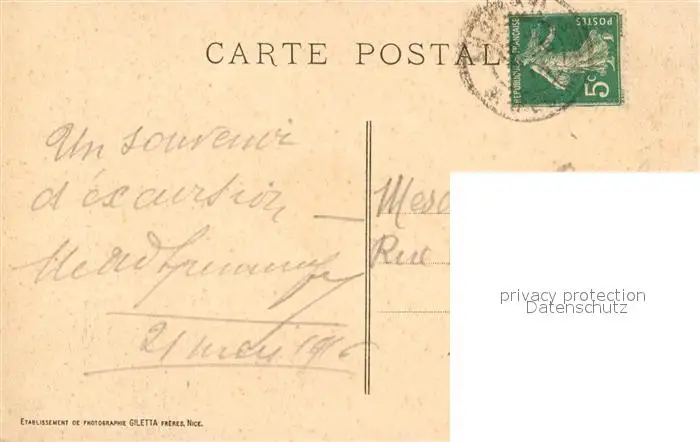 CARTE POSTAL
POSTES
REPUBLIQUE FRANÇAISE
5c
Un souvenir
d'éxcursion
Mesd
Rue
21 mai
privacy protection
Datenschutz
ETABLISSEMENT DE PHOTOGRAPHIE GILETTA FRÈRES, NICE.